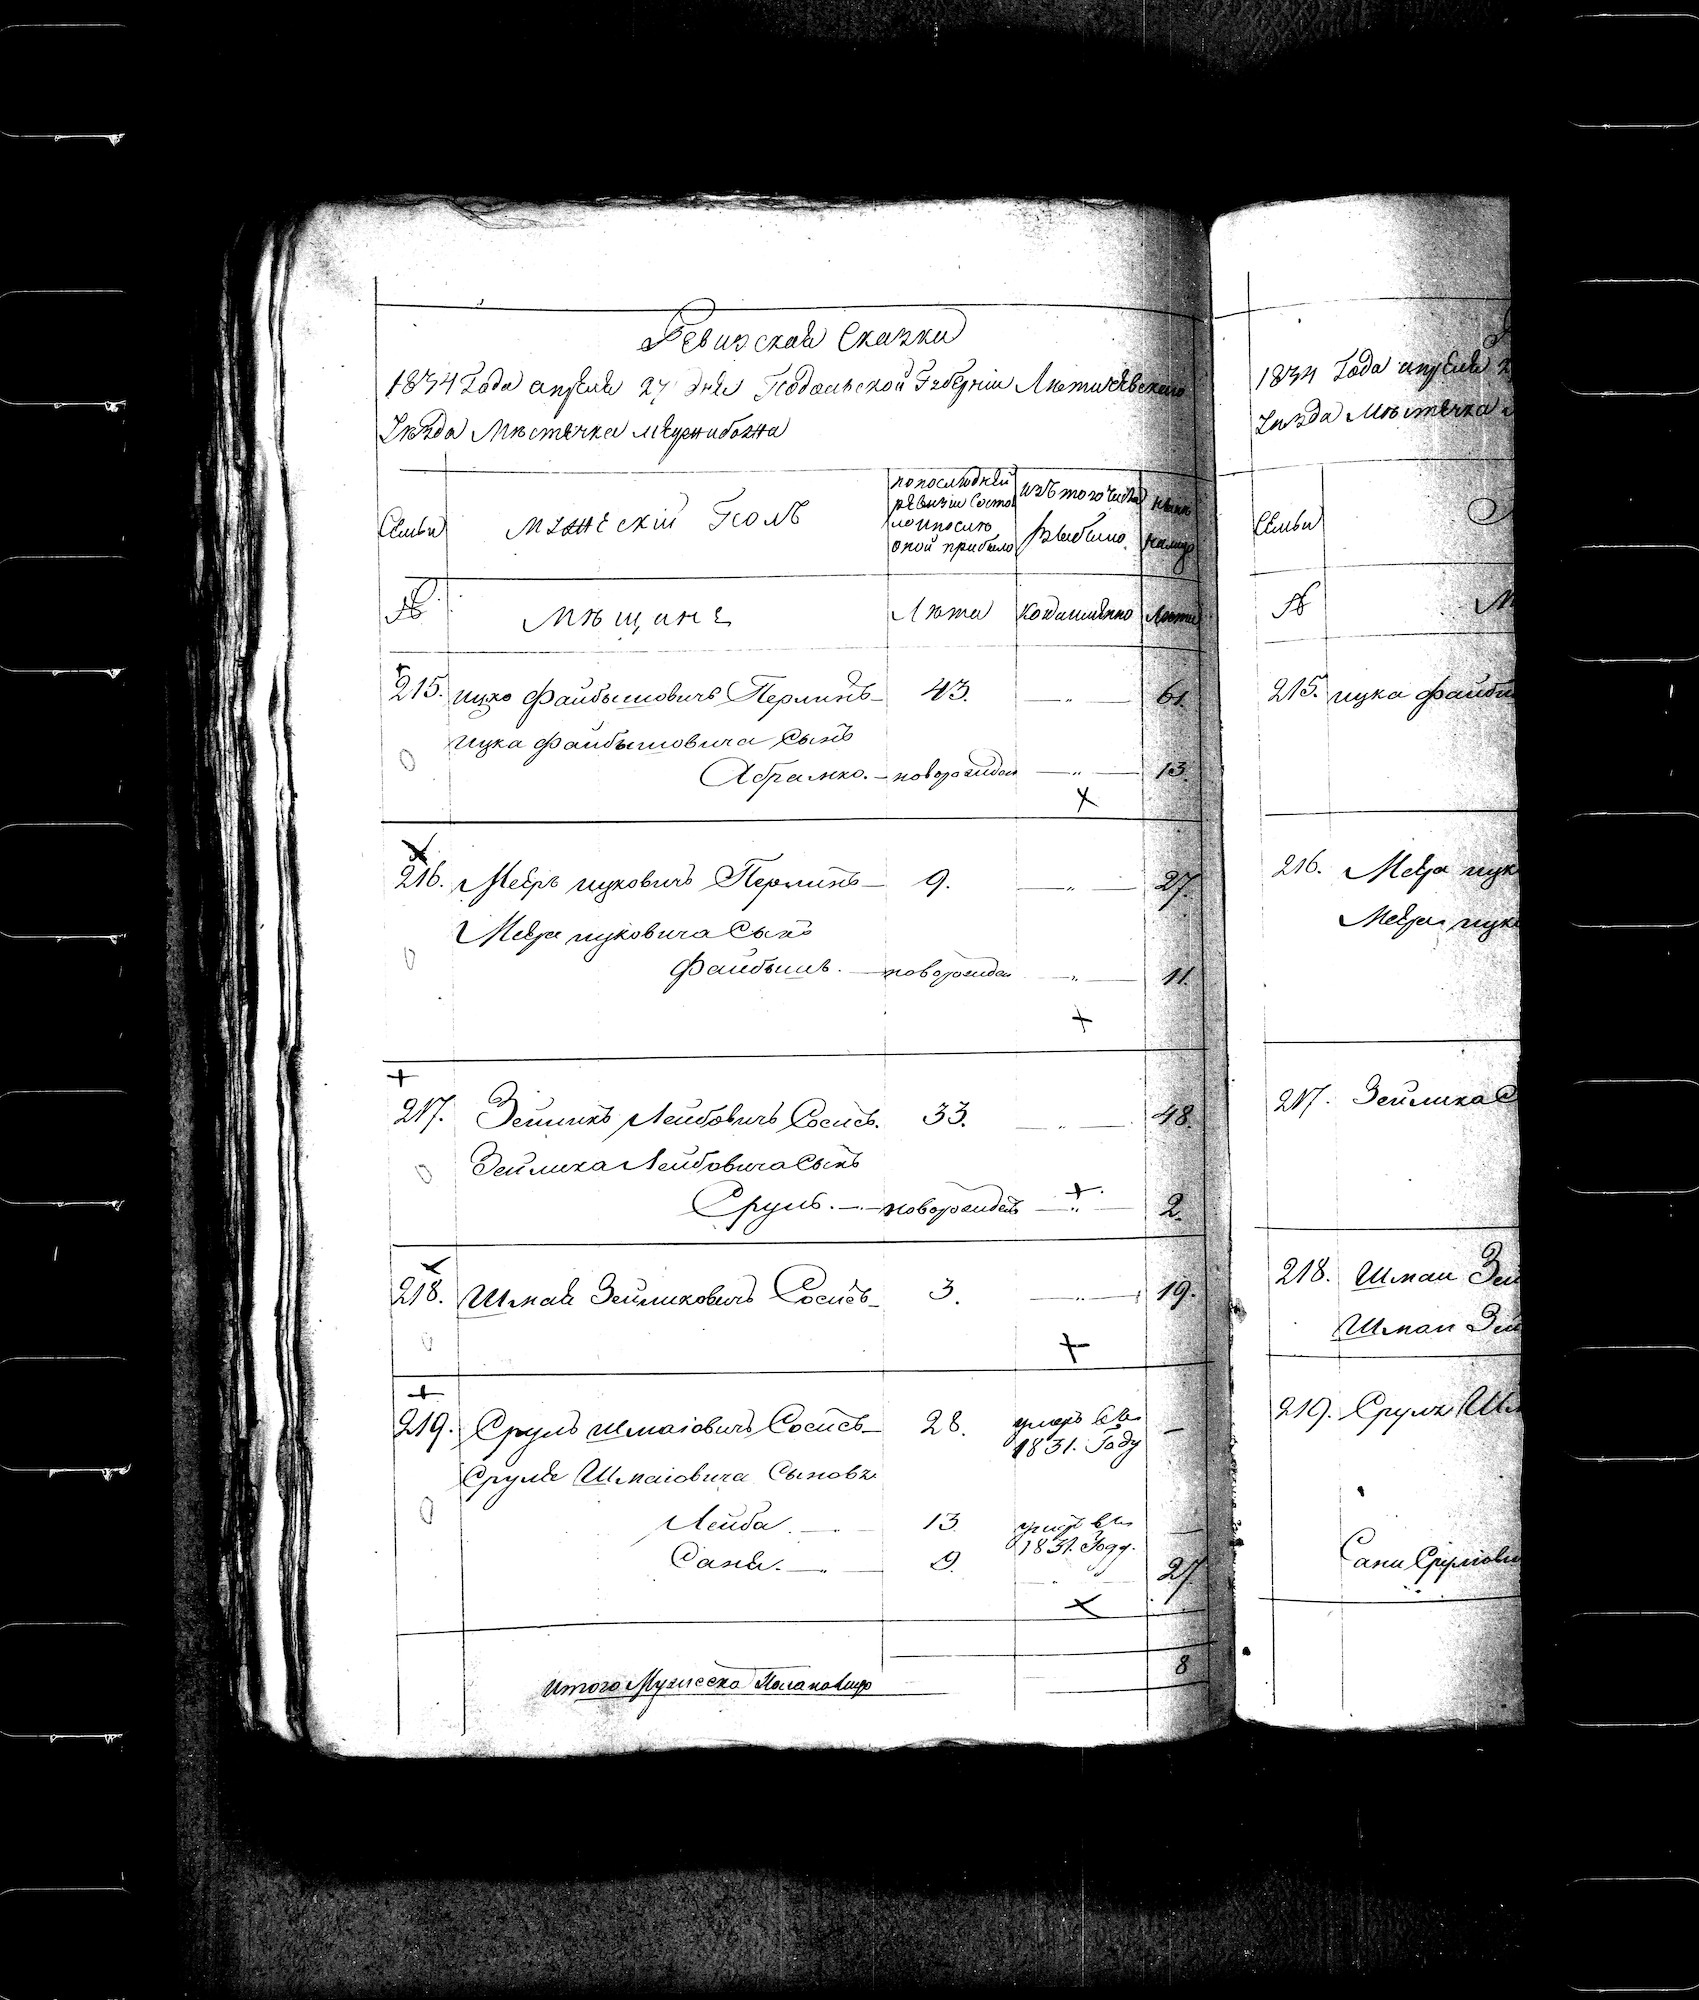 Ревизская Сказка
1834 Года апреля 27 дня Подольской Губернии Летичевского
Уезда Местечка Меджибожа
Семьи
Мужеский Полъ
по последней
ревизіи состо
ло и после
оной прибыло
изъ того числа
выбыло.
ныне
налицо
№
Мещане
Лета
Когда именно
Лета
215. ицко Файбышовичъ Перлинъ 43. —"— 61.
ицка Файбышовича Сынъ
Абрамко. — новорожден —"— 13.
216. Меер ицковичъ Перлинъ 9. —"— 27.
Меера ицковича Сынъ
Файбишъ. — новорожден —"— 11.
217. Зейликъ Лейбовичъ Сосисъ. 33. —"— 48.
Зейлика Лейбовича Сынъ
Сруль. — новорожденъ —"— 2.
218. Шмая Зейликовичъ Сосисъ 3. —"— 19.
219. Сруль Шмаіовичъ Сосисъ 28. умеръ въ —
1831. Году
Сруля Шмаіовича Сыновья
Лейба. 13. умеръ въ —
1831. Году.
Саня. 9. 27.
итого Мужеска Пола налицо 8
1834 Года апреля 2
Уезда Местечка
Семьи
№
215. ицка Файби
216. Меера ицк
Меера ицк
217. Зейлика С
218. Шмаи Зей
Шмаи Зей
219. Сруля Шм
Сани Срулови